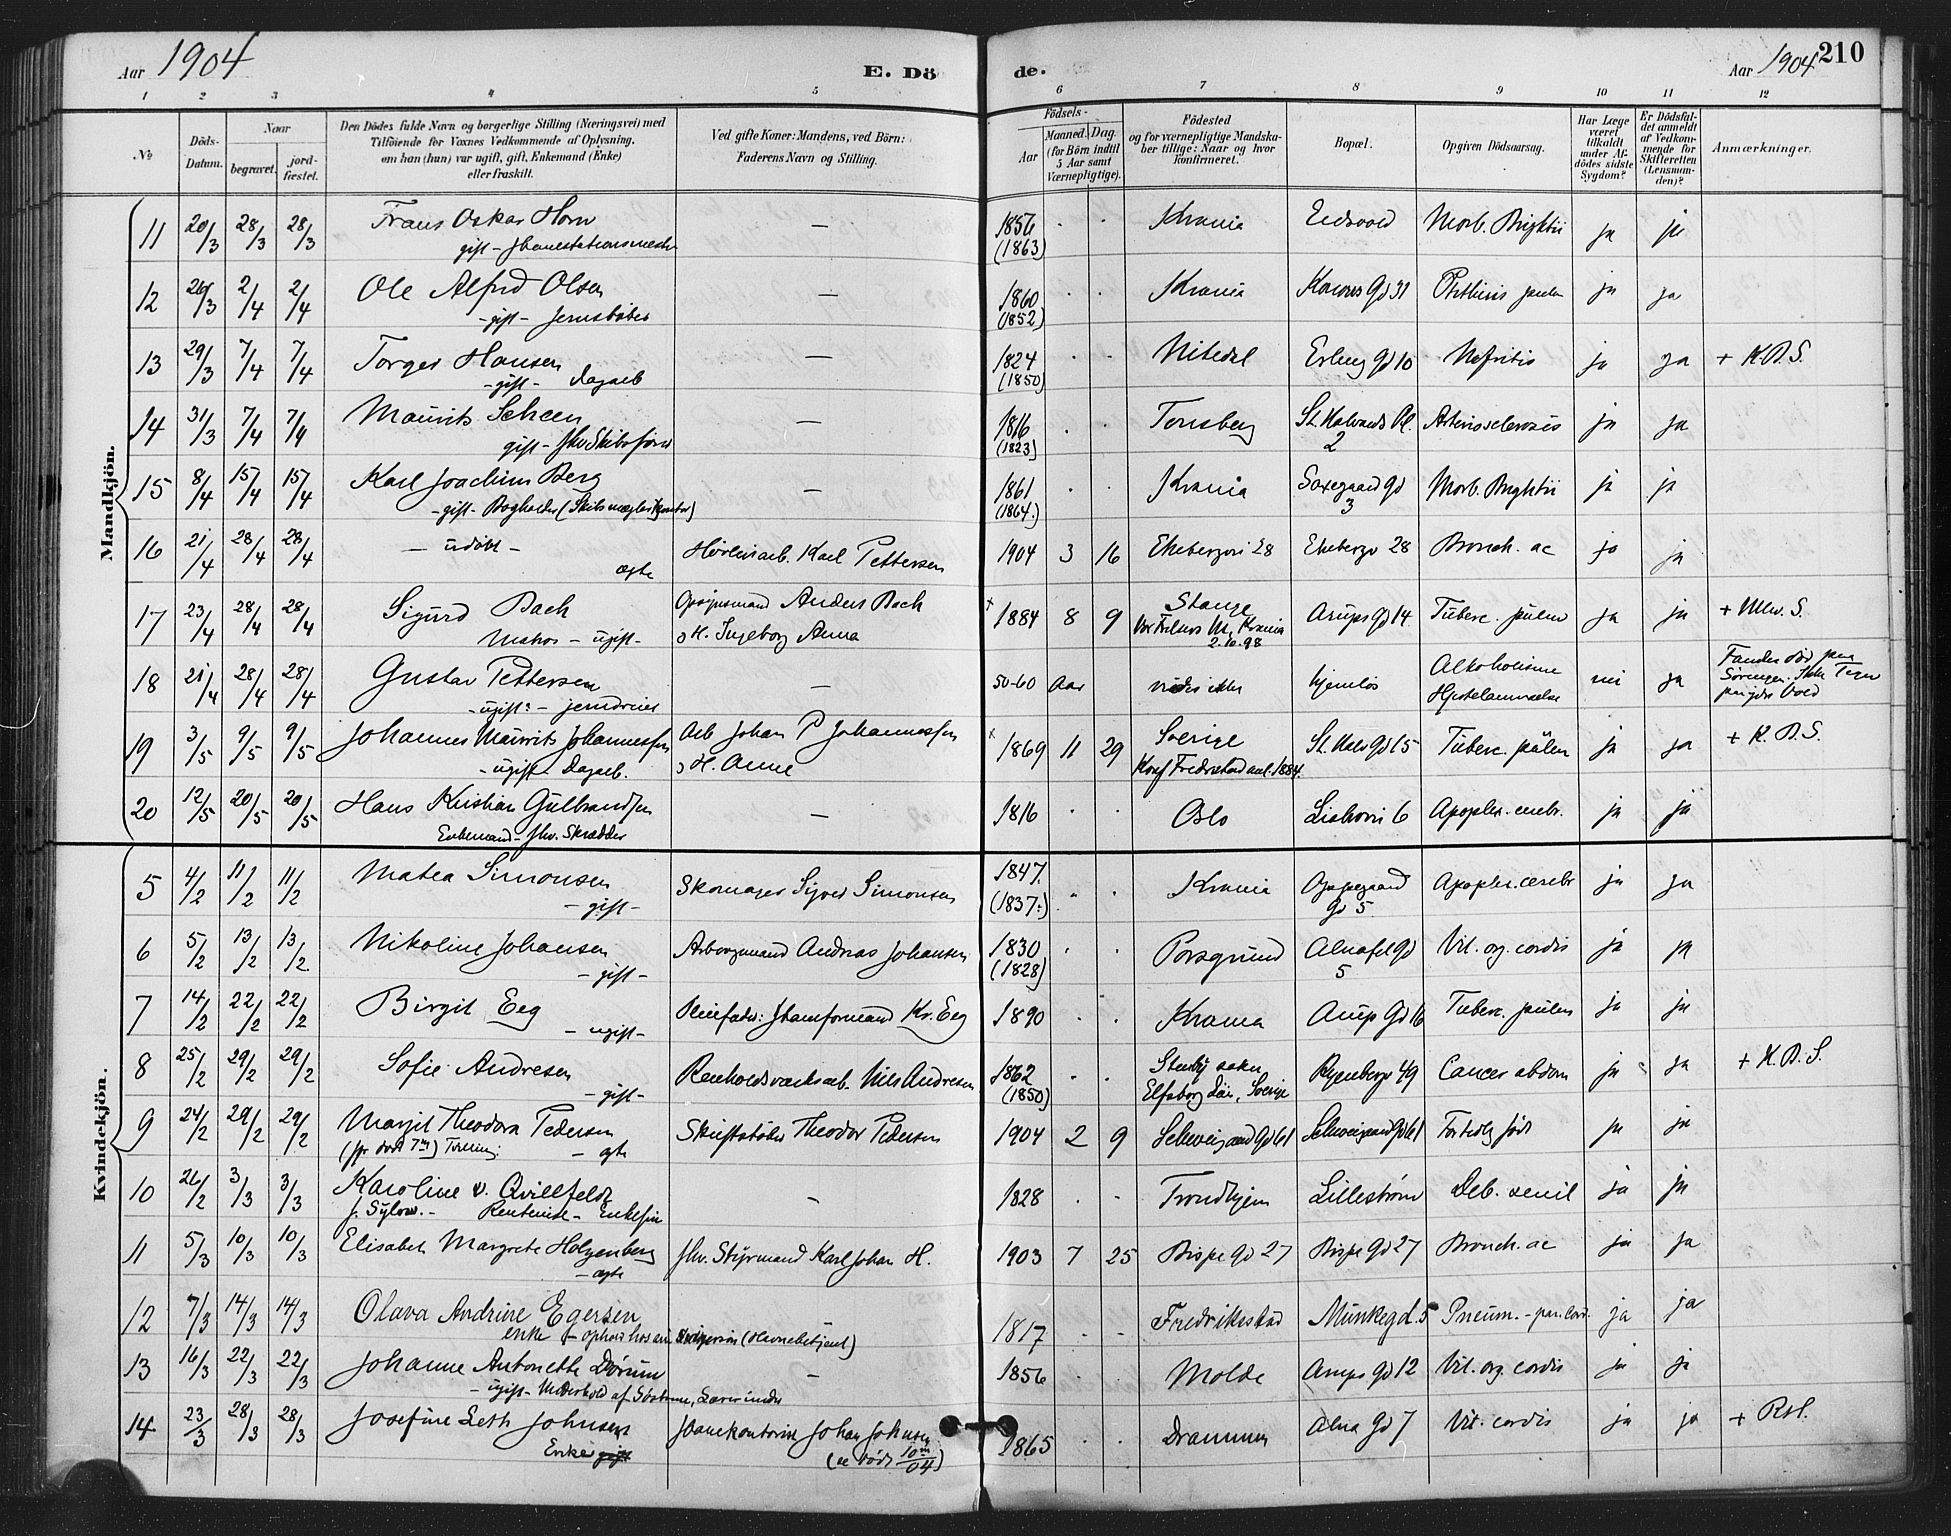 Aar 1904
E. Dö
de.
Aar 1904
210
1 2 3 4 5 6 7 8 9 10 11 12
No
Döds-
Datum.
Naar
begravet.
jord-
fæstet.
Den Dödes fulde Navn og borgerlige Stilling (Næringsvei) med
Tilföiende for Voxnes Vedkommende af Oplysning,
om han (hun) var ugift, gift, Enkemand (Enke)
eller fraskilt.
Ved gifte Koner: Mandens, ved Börn:
Faderens Navn og Stilling.
Födsels-
Aar
Maaned. Dag.
(for Börn indtil
5 Aar samt
Værnepligtige).
Födested
og for værnepligtige Mandska-
ber tillige: Naar og hvor
konfirmeret.
Bopæl.
Opgiven Dödsaarsag.
Har Læge
været
tilkaldt
under Af-
dödes sidste
Sygdom?
Er Dödsfal-
det anmeldt
af Vedkom-
mende for
Skifteretten
(Lensman-
den)?
Anmærkninger.
Mandkjön.
11 20/3 28/3 28/3 Frans Oskar Horn — 1856 · · Krania Eidsvold Morb. Brightii ja ja
gift - Jbanestationsmester (1863)
12 26/3 2/4 2/4 Ole Alfred Olsen — 1860 · · Krania Gd 31 Phthisis pulm ja ja
- gift - Jernstöber (1852)
13 29/3 7/4 7/4 Torger Hansen — 1824 · · Nitedal Erling Gd 10 Nefritis ja ja + K.D.S.
- gift - Dagarb (1850)
14 31/3 7/4 7/4 Maurits Scheen — 1816 · · Tonsberg St. Halvards Pl. Arteriosclerosis ja ja
gift - fhv. Skibsförer (1823) 2
15 8/4 15/4 15/4 Karl Joachim Berg — 1861 · · Krania Saxegaard Gd Morb. Brightii ja ja
- gift - Bogholder (Skibsmæglerkontor) (1864.) 3
16 21/4 28/4 28/4 - udöbt - Hövleriarb. Karl Pettersen 1904 3 16 Ekebergvei 28 Ekebergv 28 Bronch. ac ja ja
ægte
17 23/4 28/4 28/4 Sigurd Bach Opsynsmand Anders Bach × 1884 8 9 Stange Arups Gd 14 Tuberc. pulm ja ja + Mlw. S.
Matros - ugift - o H. Ingeborg Anna Vor Frelsers M, Krania
2.10.98
18 21/4 28/4 28/4 Gustav Pettersen — 50-60 Aar vides ikke hjemlös Alkoholisme nei ja Funden död paa
- ugift? - jerndreier Hjertelammelse Sörengen. Ikke Tegn
paa ydre Vold
19 3/5 9/5 9/5 Johannes Maurits Johannessen Arb Johan P Johannessen × 1869 11 29 Sverige St. Halv Gd 15 Tuberc. pulm ja ja + K.D.S.
- ugift - Dagarb. o H. Anne Konf Fredrikstad anl. 1884.
20 12/5 20/5 20/5 Hans Kristian Gulbrandsen — 1816 · · Oslo 6 Apoplex. cerebr. ja ja
Enkemand - fhv. Skrædder
Kvindekjön.
5 4/2 11/2 11/2 Matea Simonsen Skomager Syver Simonsen 1847. · · Krania Oppegaard Apoplex. cerebr ja ja
- gift - (1837:) Gd 5
6 5/2 13/2 13/2 Nikoline Johansen Avborgmand Andreas Johansen 1830 · · Porsgrund Alnafet Gd Vit. org. cordis ja ja
- gift - (1828) 5
7 14/2 22/2 22/2 Birgit Eeg Pleiefader: Jbaneformand Kr. Eeg 1890 · · Krania Arup Gd 16 Tuberc. pulm ja ja
- ugift -
8 25/2 29/2 29/2 Sofie Andresen Renholdsværksarb. Nils Andresen 1862 · · Stenby sokn Ryenbergv 49 Cancer abdom ja ja + K.D.S.
- gift - (1850) Elfsborg Län, Sverige
9 24/2 29/2 29/2 Margit Theodora Pedersen Skriftstöber Theodor Pedersen 1904 2 9 Schweigaard Gd 61 Schweigaard Gd 61 For tidlig född ja ja
Tvilling. - ægte
10 26/2 3/3 3/3 Karoline v. Qvillfeldt — 1828 · · Trondhjem Lilleström Deb. senil ja ja
f. Sylow. - Rentenist - Enkefrue
11 5/3 10/3 10/3 Elisabeth Margrete Holgenberg fhv. Styrmand Karl Johan H. 1903 7 25 Bispe Gd 27 Bispe Gd 27 Bronch. ac ja ja
- ægte
12 7/3 14/3 14/3 Olava Andrine Egersen 1817 · · Fredriksstad Munkegd. 5 Pneum. - par. cord. ja ja
enke (- ophold hos en Svigersön (Havnebetjent)
13 16/3 22/3 22/3 Johanne Antonette Dörum — 1856 Molde Arups Gd 12 Vit. org. cordis ja ja
- ugift - Underhold af Söstrene, Lærerinder
14 23/3 28/3 28/3 Josefine Leth Johnsen Jbanekontorist Johan Johnsen 1865 · · Drammen Alna Gd 7 Vit. cordis ja ja + Rst.
Enke gift (er död 10/04)